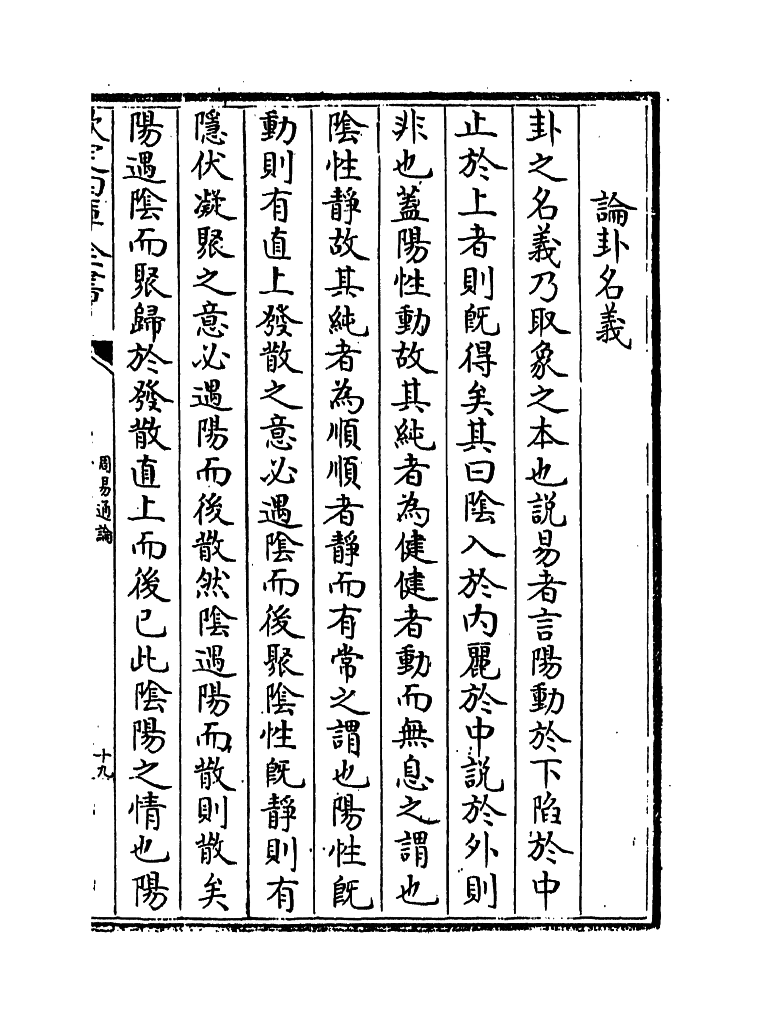 論卦名義
卦之名義乃取象之本也説易者言陽動於下陷於中
止於上者則既得矣其曰陰入於内麗於中説於外則
非也蓋陽性動故其純者為健健者動而無息之謂也
陰性靜故其純者為順順者靜而有常之謂也陽性既
動則有直上發散之意必遇陰而後聚陰性既靜則有
隱伏凝聚之意必遇陽而後散然陰遇陽而散則散矣
陽遇陰而聚歸於發散直上而後已此陰陽之情也陽
周易通論
十九